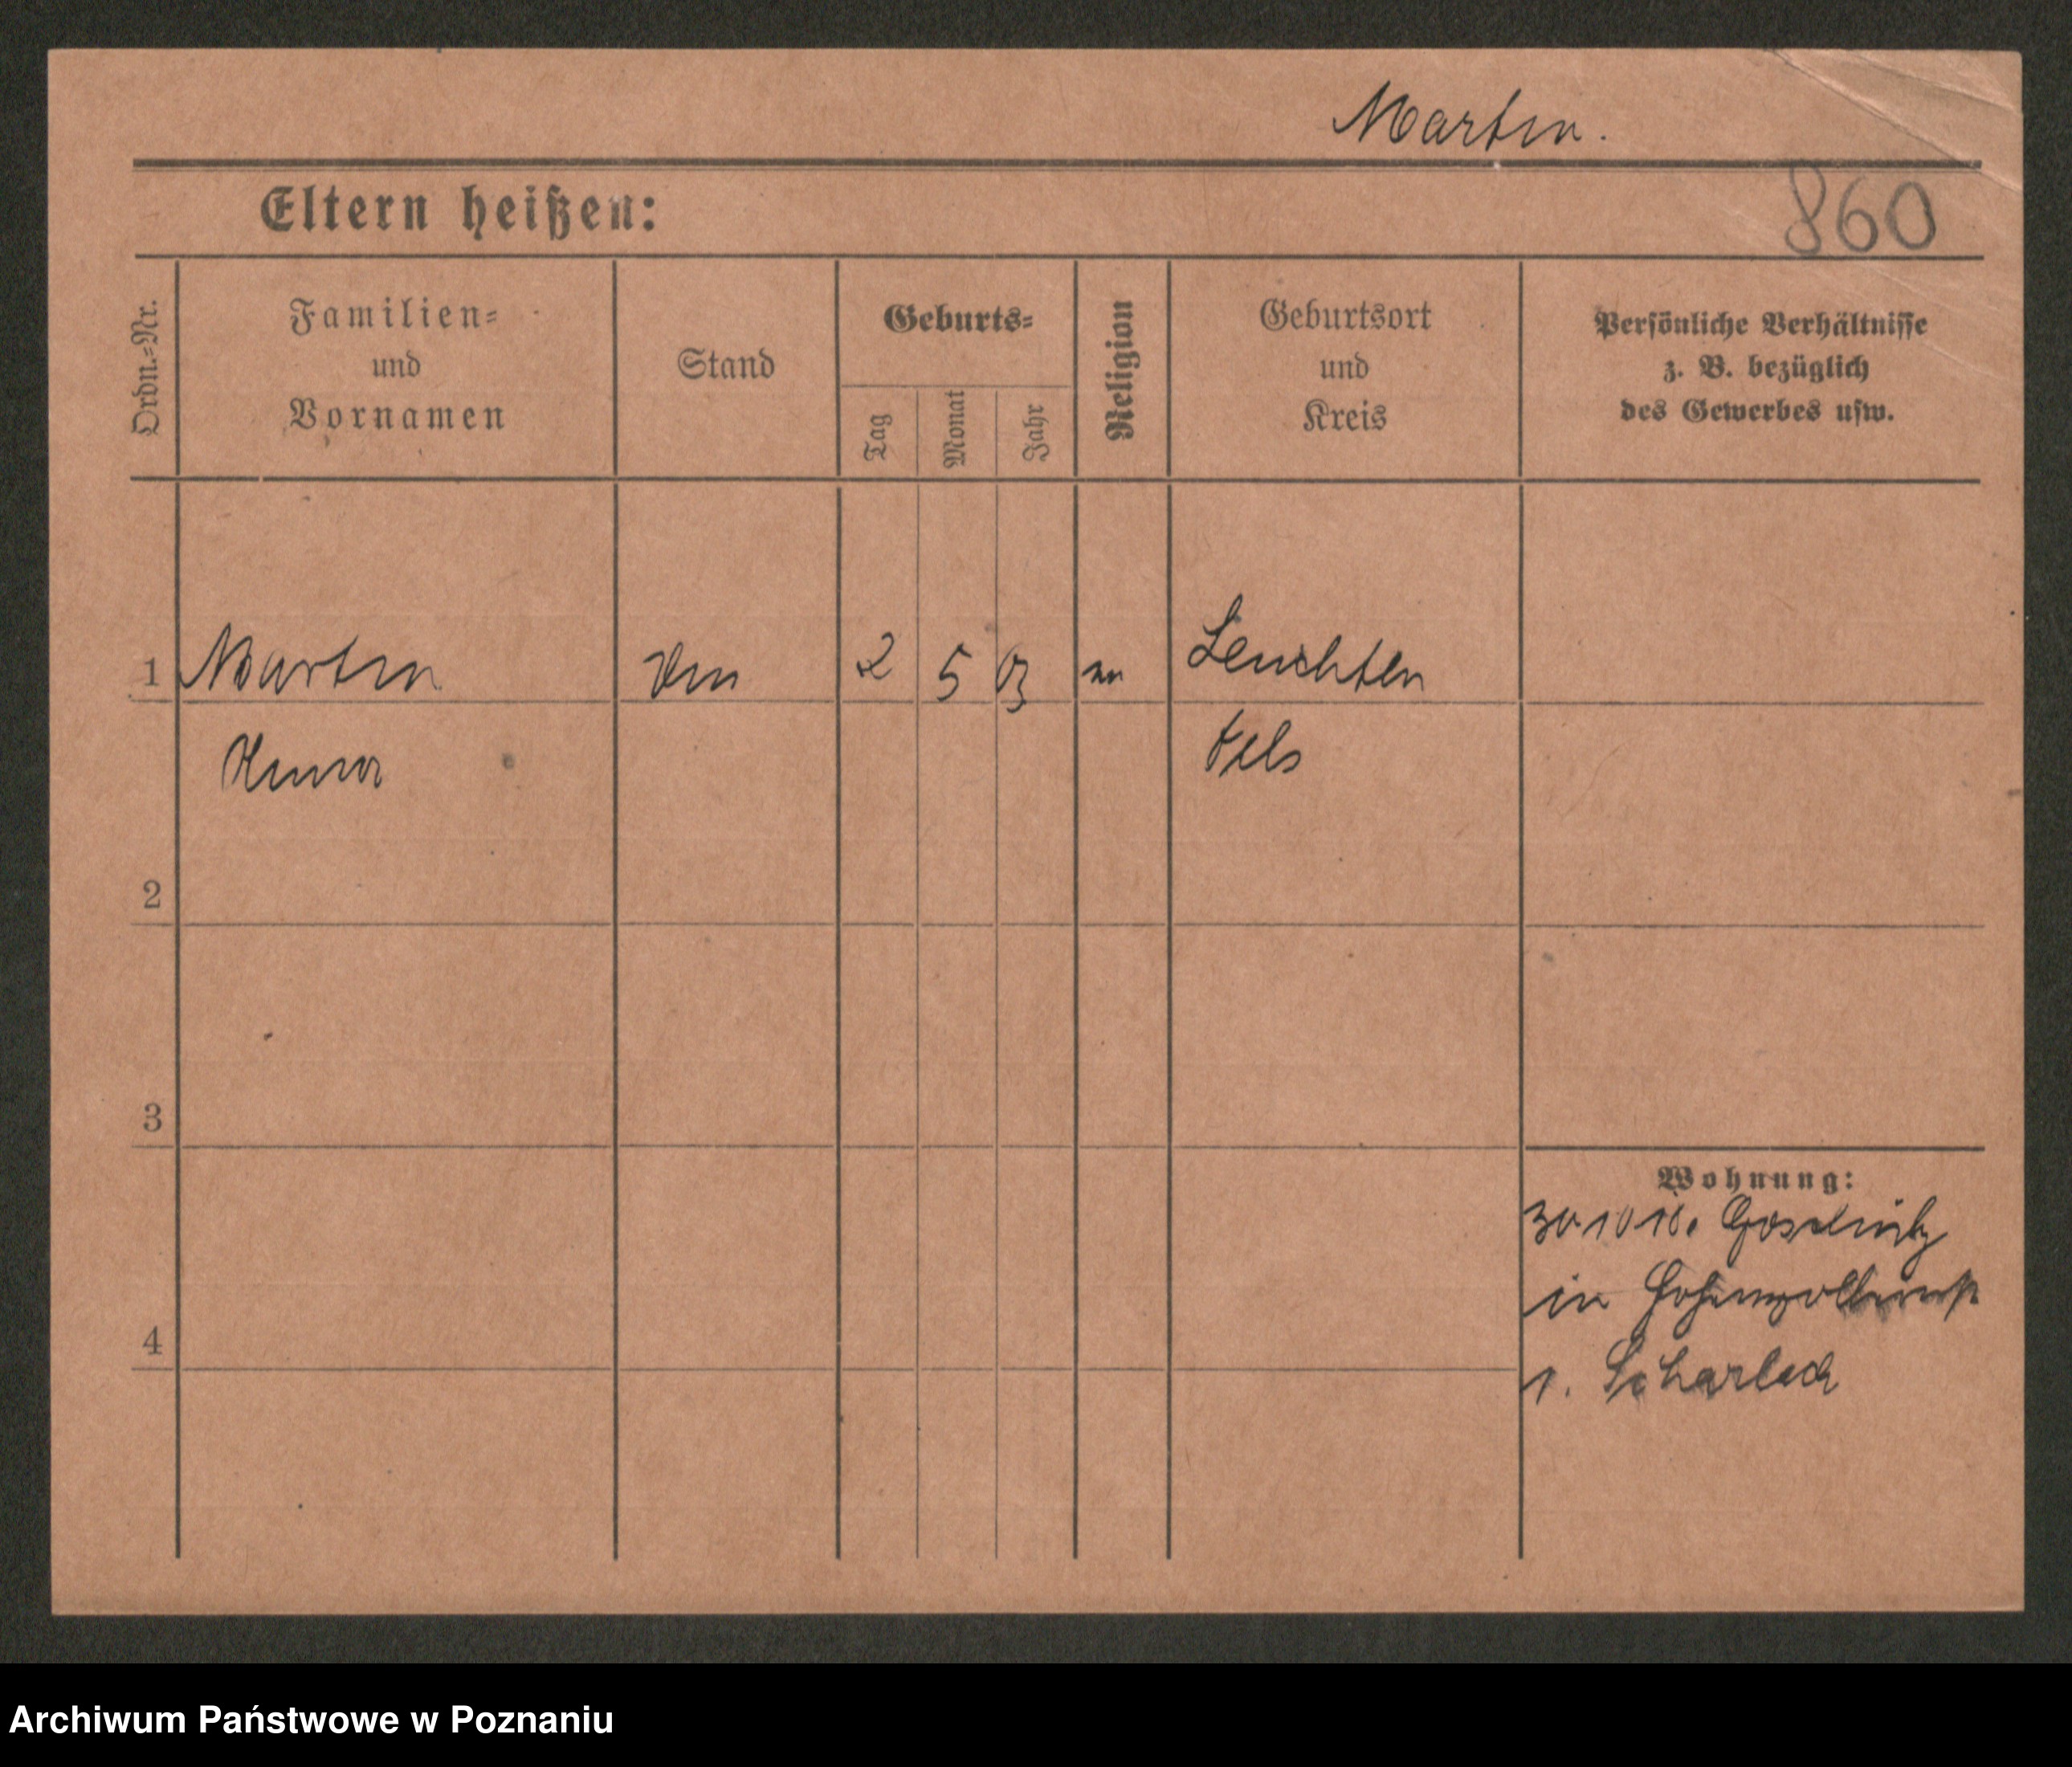 Martin.
Eltern heißen:
860
Ordn.=Nr.
Familien=
und
Vornamen
Stand
Geburts=
Tag
Monat
Jahr
Religion
Geburtsort
und
Kreis
Persönliche Verhältnisse
z. B. bezüglich
des Gewerbes usw.
1 Martin 2 5 03 Leuchten
Oels
2
3
4
Wohnung:
30.10.18.
in
1. Scharlach
Archiwum Państwowe w Poznaniu